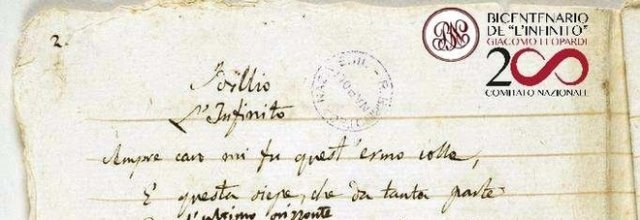 2.
BICENTENARIO
DE "L'INFINITO"
GIACOMO LEOPARDI
200
COMITATO NAZIONALE
Idillio
L'Infinito
Sempre caro mi fu quest'ermo colle,
E questa siepe, che da tanta parte
l'ultimo orizzonte